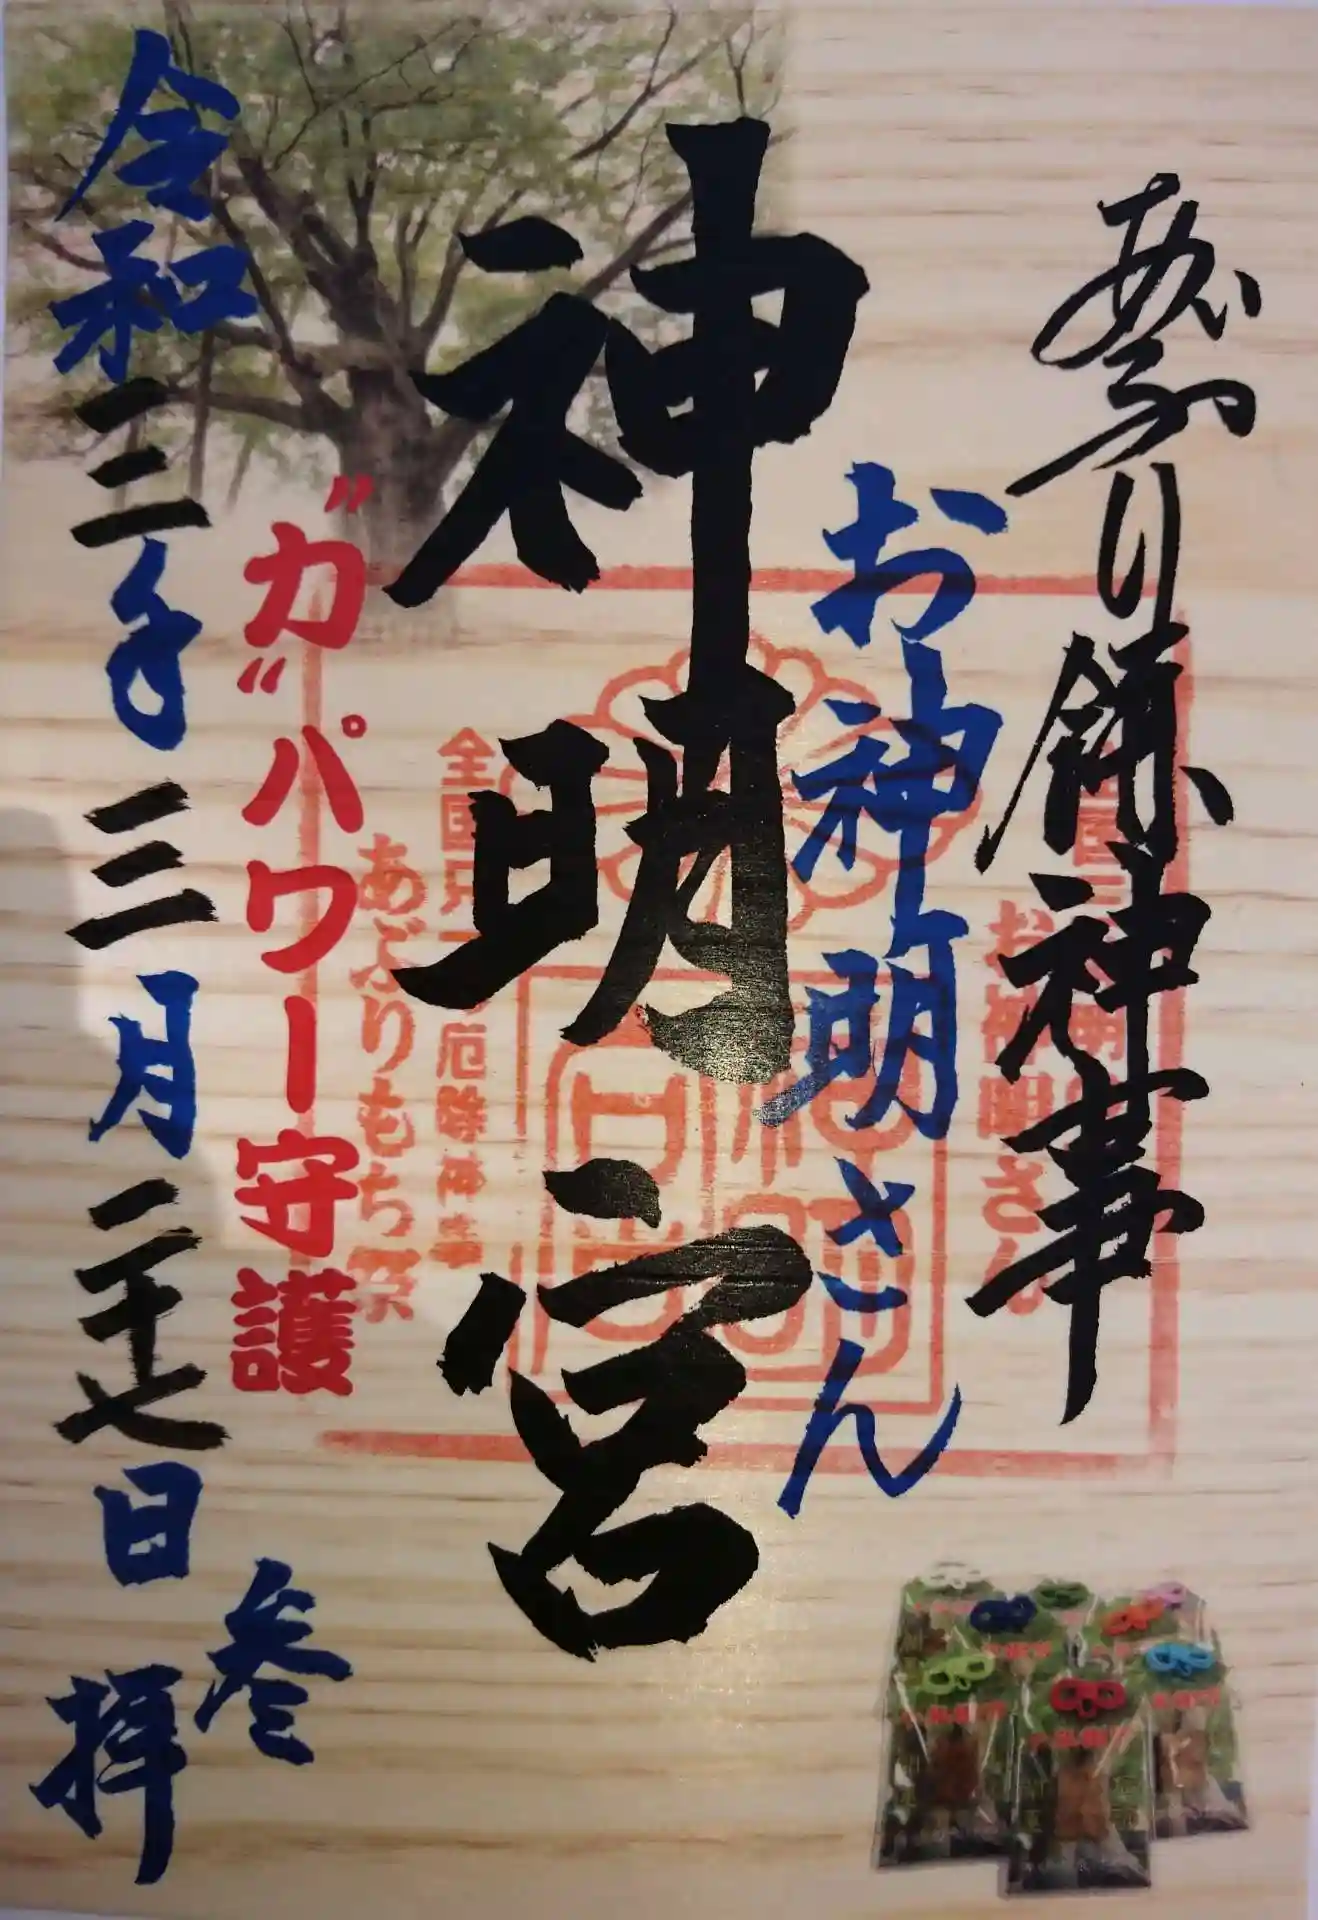 あぶり餅神事
お神明さん
神明宮
"力"パワー守護
令和三年三月二十七日
参拝
お神明さん
全国只一つ厄除神事
あぶりもち祭